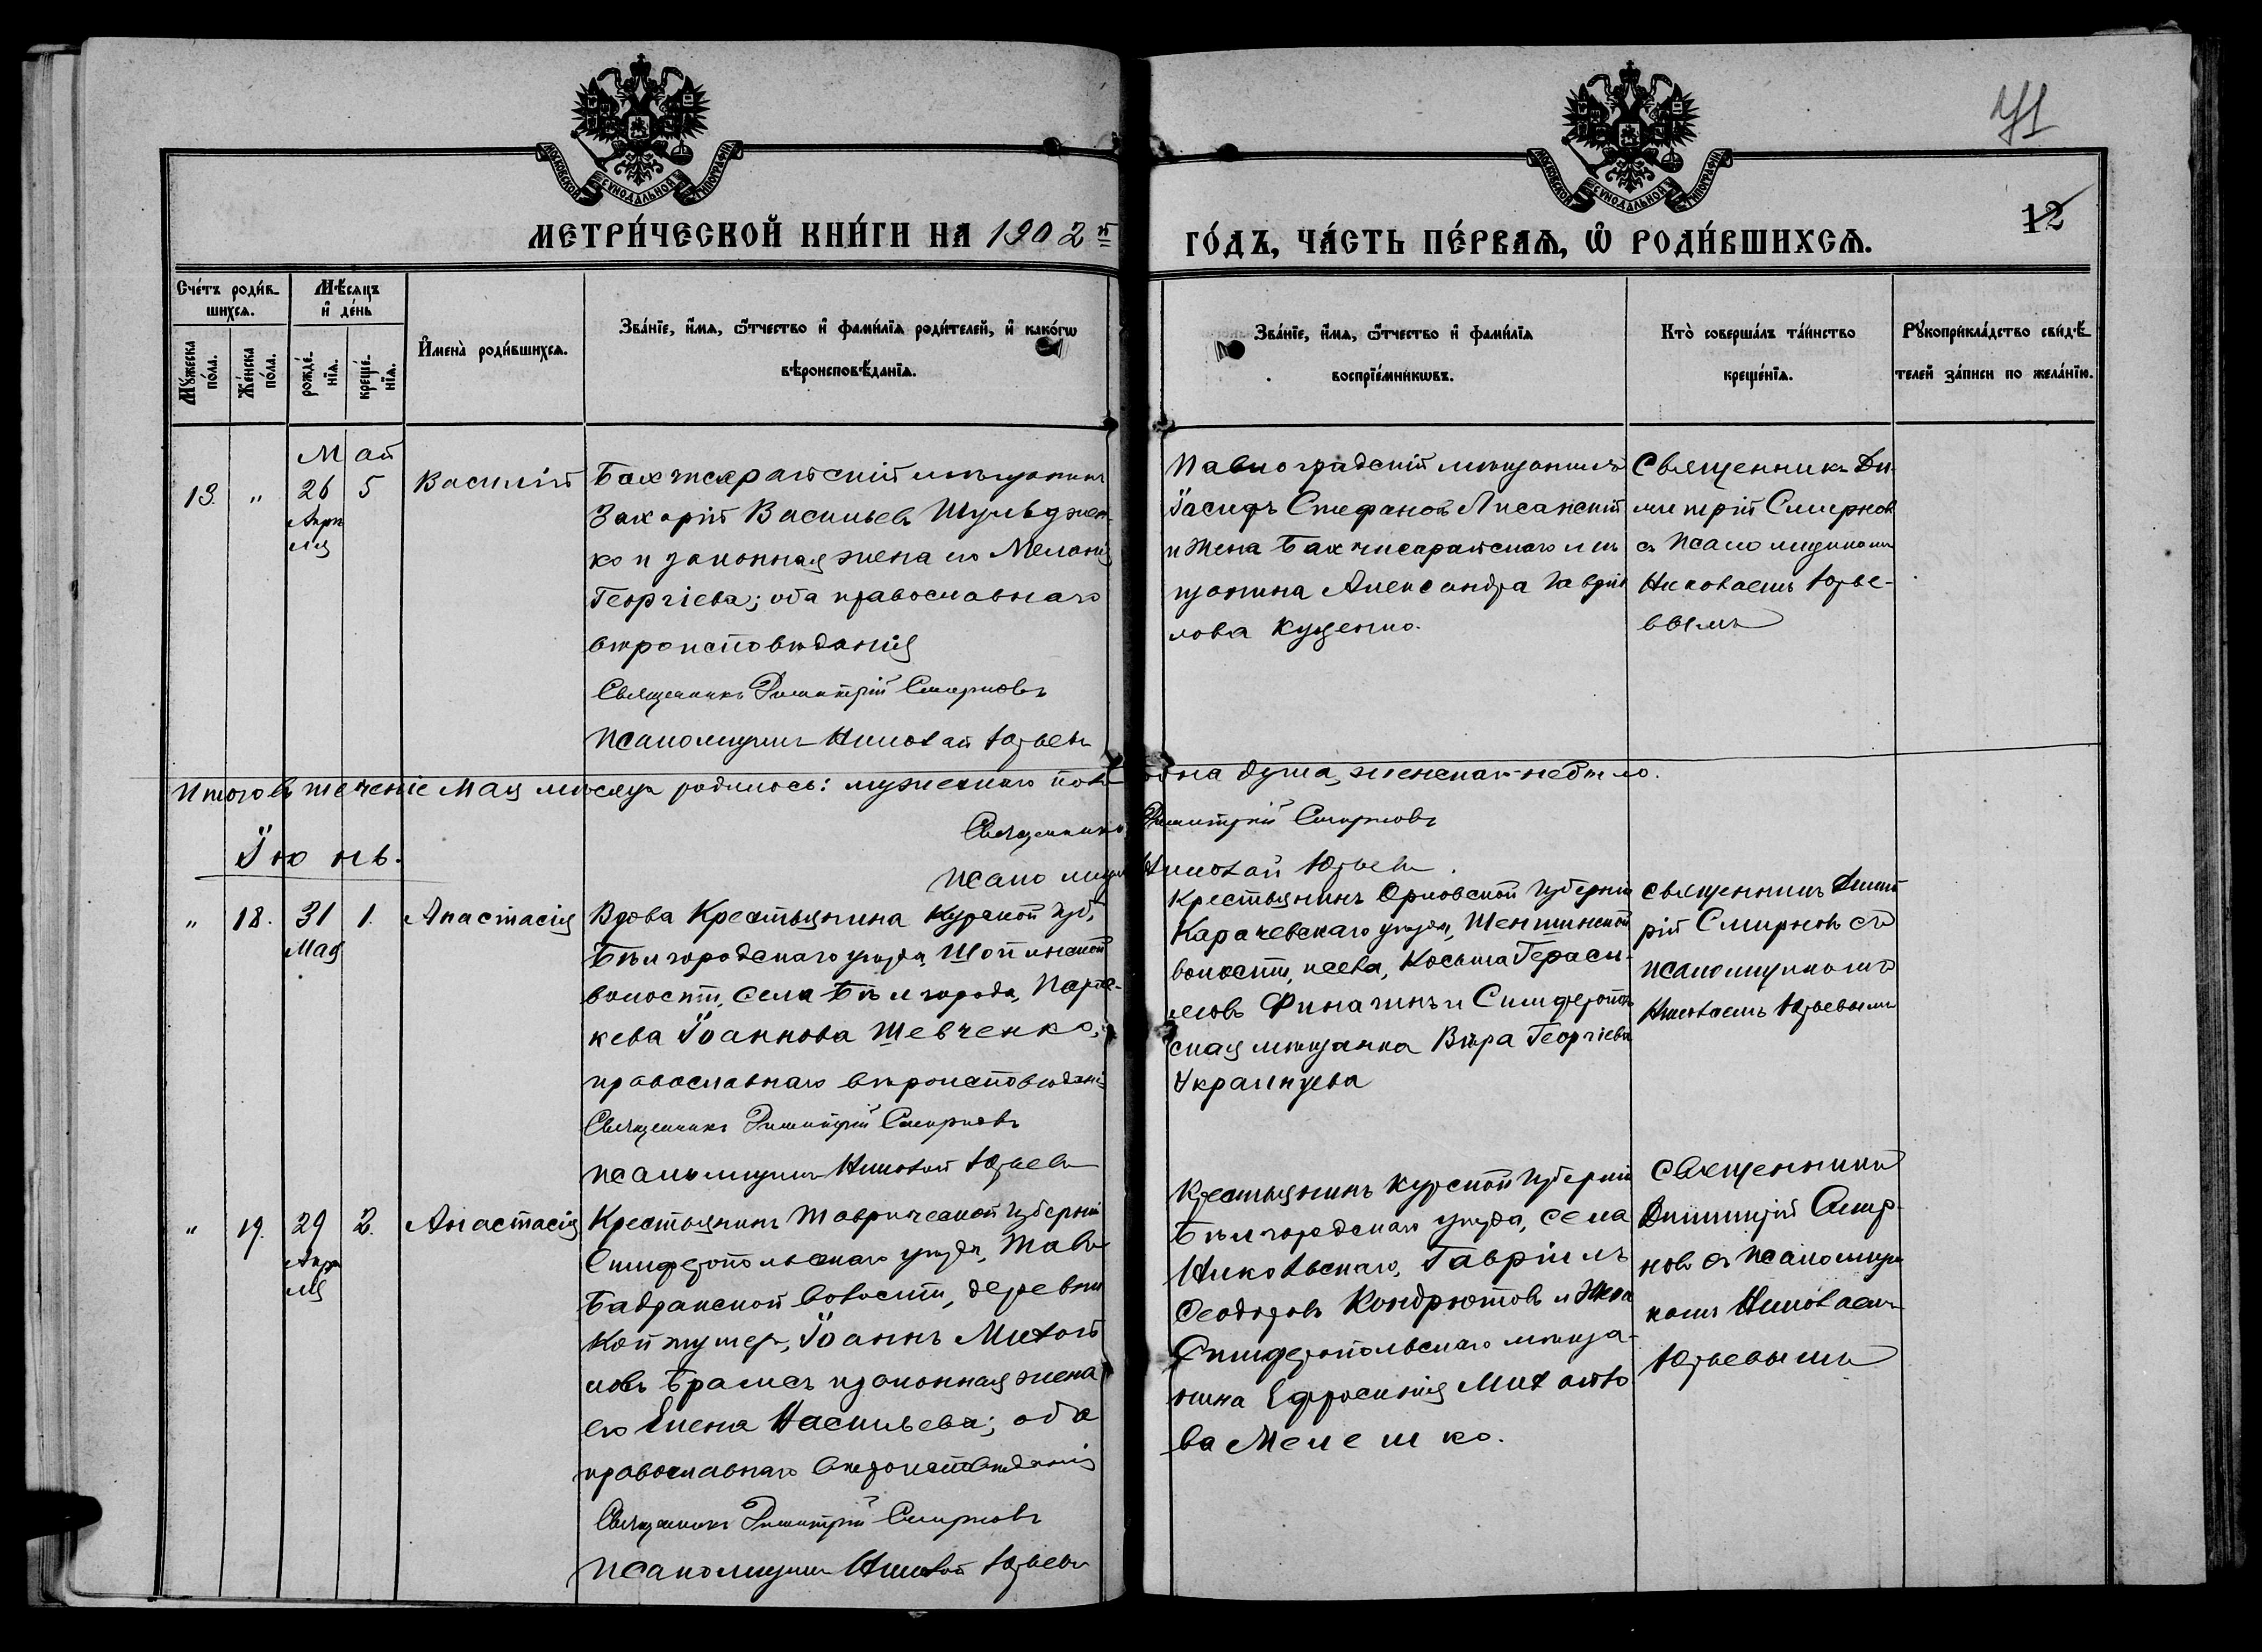 МОСКОВСКОЙ СѴНОДАЛЬНОЙ ТИПОГРАФІИ
МОСКОВСКОЙ СѴНОДАЛЬНОЙ ТИПОГРАФІИ
71
12
МЕТРИ́ЧЕСКОЙ КНИ́ГИ НА 1902 й
ГО́ДЪ, ЧА́СТЬ ПЕ́РВАѦ, Ѡ҆ РОДИ́ВШИХСѦ.
Сче́тъ роди́в-
шихсѧ.
Мѣ́сѧцъ
и҆ де́нь
Мꙋ́жеска
по́ла.
Же́нска
по́ла.
рожде́-
нїѧ.
креще́-
нїѧ.
И҆мена̀ роди́вшихсѧ.
Зва́нїе, и҆́мѧ, ѻ҆́тчество и҆ фами́лїѧ роди́телей, и҆ како́гѡ
вѣроисповѣ́данїѧ.
Зва́нїе, и҆́мѧ, ѻ҆́тчество и҆ фами́лїѧ
воспрїе́мникѡвъ.
Кто̀ соверша́лъ та́инство
креще́нїѧ.
Рꙋкоприкла́дство свидѣ́-
телей за́писи по жела́нїю.
Май
13. " 26 5 Василій
Апре
ля
Бахчисарайскій мѣщанинъ
Захарій Васильевъ Шульджен-
ко и законная жена его Меланія
Георгіева; оба православнаго
вѣроисповѣданія
Священникъ Димитрій Смирновъ
Псаломщикъ Николай Юрьевъ
Павлоградскій мѣщанинъ
Іосифъ Стефановъ Лисанскій
и жена Бахчисарайскаго мѣ
щанина Александра Гаврі
лова Куценко.
Священникъ Ди-
митрій Смирновъ
съ псаломщикомъ
Николаемъ Юрье-
вымъ
Итого въ теченіе Мая мѣсяца родилось: мужескаго пола одна душа, женскаго не было.
Священникъ Димитрій Смирновъ
Псаломщикъ Николай Юрьевъ
Іюнь.
" 18. 31 1. Анастасія
Мая
Вдова Крестьянина Курской губ.
Бѣлгородскаго уѣзда, Шопинской
волости, села Бѣлгорода, Парас-
кева Іоаннова Шевченко,
православнаго вѣроисповѣданія
Священникъ Димитрій Смирновъ
псаломщикъ Николай Юрьевъ
Крестьянинъ Орловской губерніи
Карачевскаго уѣзда, Шеншинской
волости, Косьма Гераси-
мовъ Финагинъ и Симферополь
ская мѣщанка Вѣра Георгіева
Украинцева
Священникъ Димит
рій Смирновъ съ
псаломщикомъ
Николаемъ Юрьевымъ
" 19. 29 2. Анастасія
Апре
ля
Крестьянинъ Таврической губерніи
Симферопольскаго уѣзда, Тавъ
Бадракской волости, деревни
Іоаннъ Михай
ловъ и законная жена
его Елена Васильева; оба
православнаго вѣроисповѣданія
Священникъ Димитрій Смирновъ
Псаломщикъ Николай Юрьевъ
Крестьянинъ Курской губерніи
Бѣлгородскаго уѣзда, села
Никольскаго, Гавріилъ
Феодоровъ Кондрютовъ и жена
Симферопольскаго мѣща-
нина Ефросинія Михайло
ва Мелешко.
Священникъ
Димитрій Смир-
новъ съ псаломщи
комъ Николаемъ
Юрьевымъ